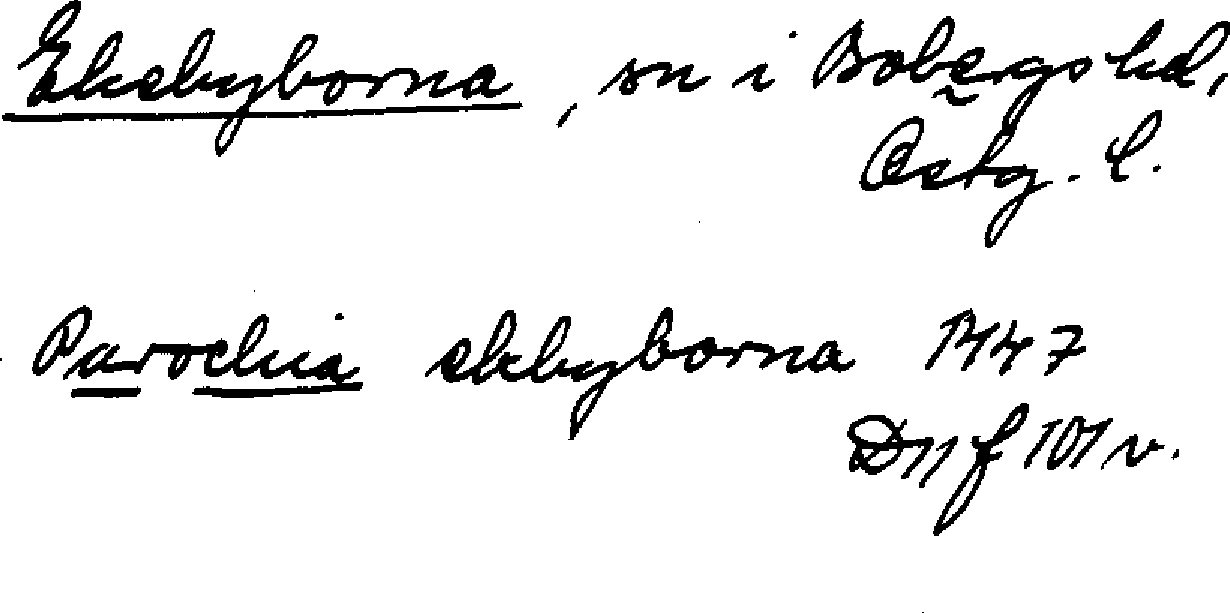 Eksbyborna, sn i Bobergs hd,
Östg. l.
Parochia ekbyborna 1447
D 11 f 101 v.